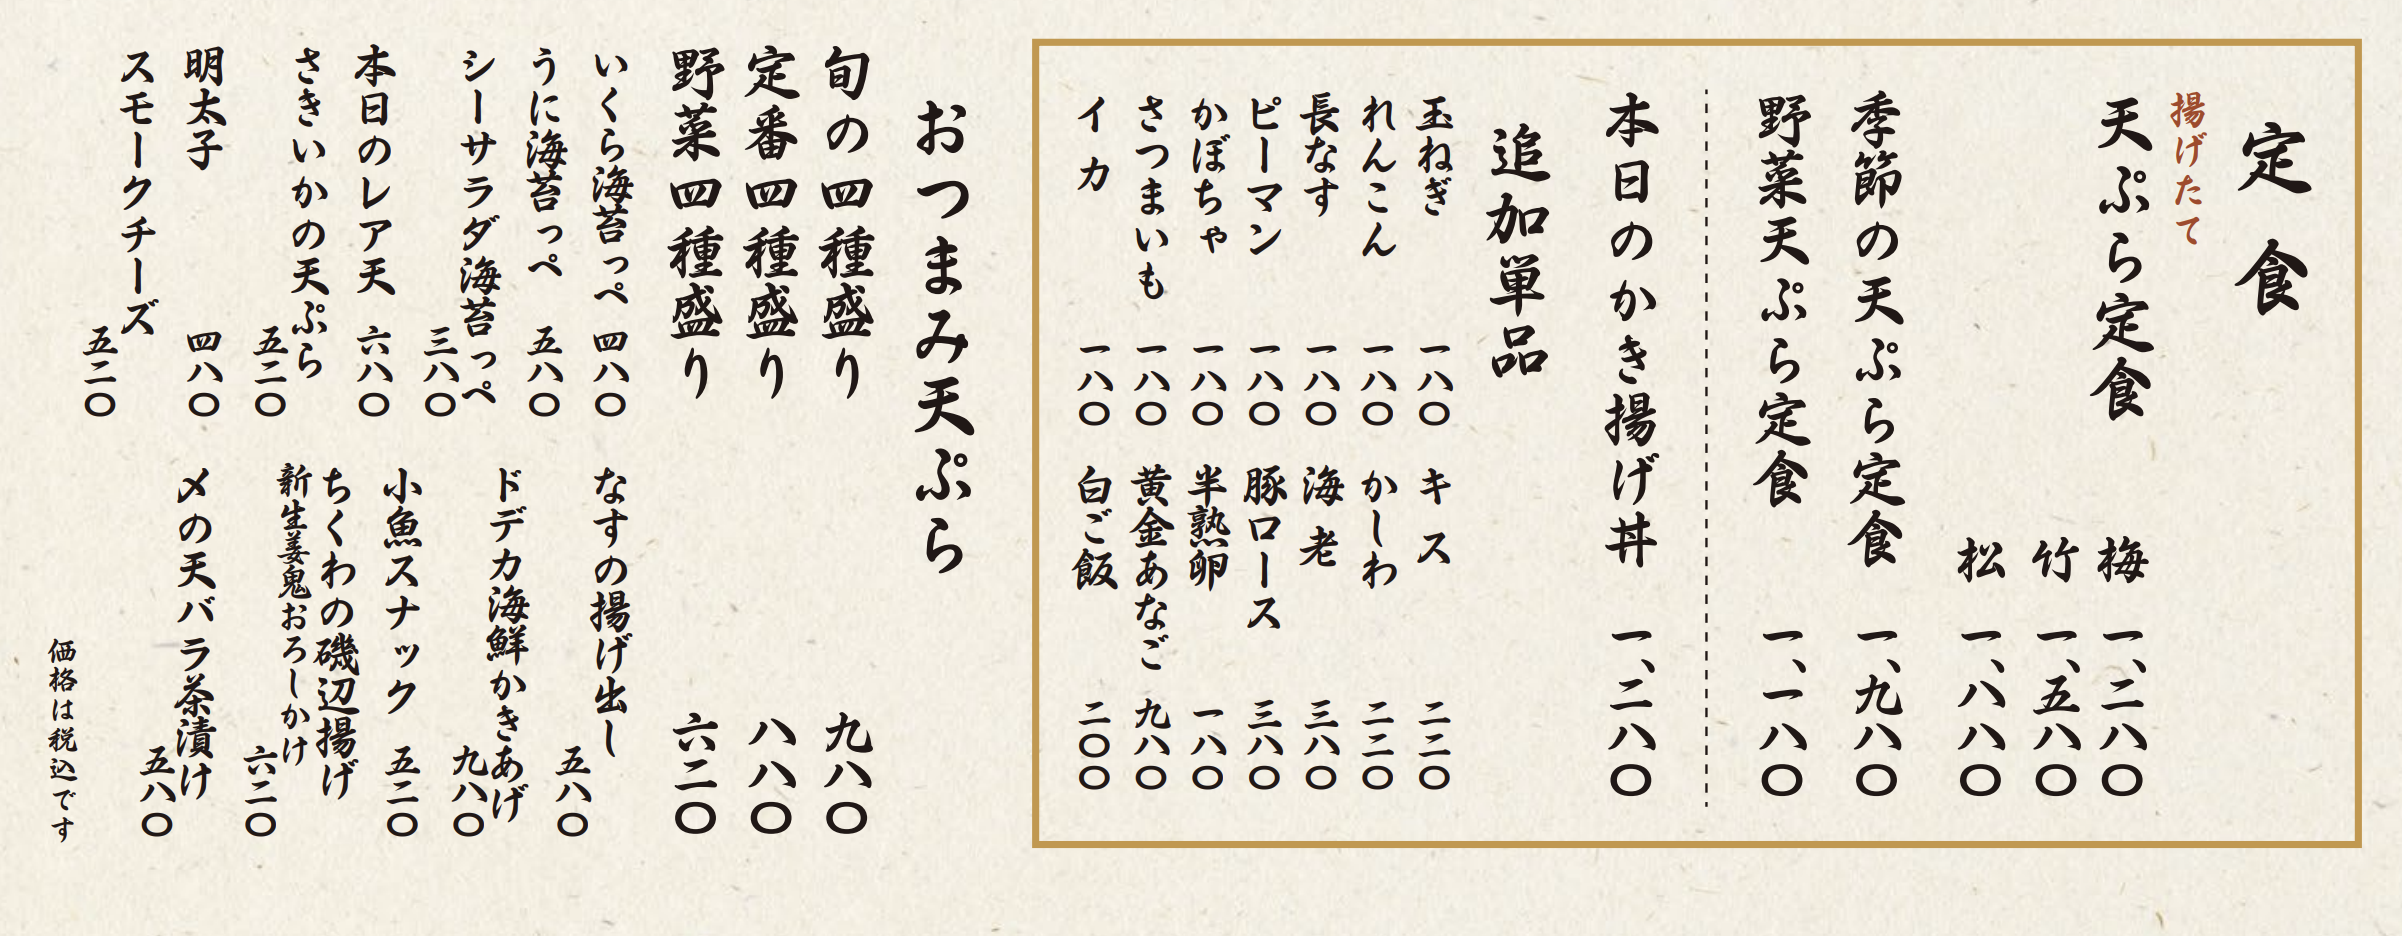 定食
揚げたて
天ぷら定食
梅 一、二八〇
竹 一、五八〇
松 一、八八〇
季節の天ぷら定食 一、九八〇
野菜天ぷら定食 一、一八〇
本日のかき揚げ丼 一、二八〇
追加単品
玉ねぎ 一八〇
れんこん 一八〇
長なす 一八〇
ピーマン 一八〇
かぼちゃ 一八〇
さつまいも 一八〇
イカ 一八〇
キス 二二〇
かしわ 二二〇
海老 三八〇
豚ロース 三八〇
半熟卵 一八〇
黄金あなご 九八〇
白ご飯 二〇〇
おつまみ天ぷら
旬の四種盛り 九八〇
定番四種盛り 八八〇
野菜四種盛り 六二〇
いくら海苔っペ 四八〇
うに海苔っペ 五八〇
シーサラダ海苔っペ 三八〇
本日のレア天 六八〇
さきいかの天ぷら 五二〇
明太子 四八〇
スモークチーズ 五二〇
なすの揚げ出し 五八〇
ドデカ海鮮かきあげ 九八〇
小魚スナック 五二〇
ちくわの磯辺揚げ
新生姜鬼おろしかけ 六二〇
〆の天バラ茶漬け 五八〇
価格は税込です